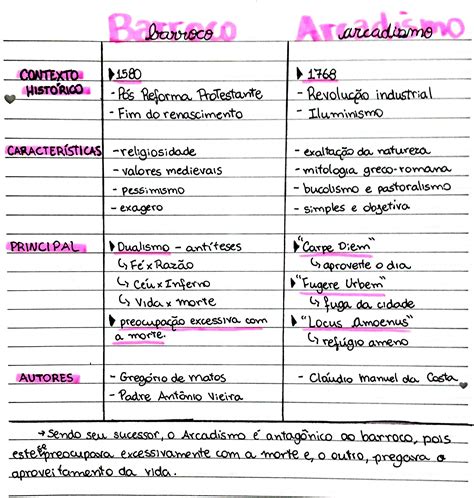 Barroco barroco Arcadismo arcadismo
CONTEXTO HISTÓRICO
1580
- Pós Reforma Protestante
- Fim do renascimento
1768
- Revolução industrial
- Iluminismo
CARACTERÍSTICAS
- religiosidade
- valores medievais
- pessimismo
- exagero
- exaltação da natureza
- mitologia greco-romana
- bucolismo e pastoralismo
- simples e objetiva
PRINCIPAL
Dualismo - antíteses
↳ Fé x Razão
↳ Céu x Inferno
↳ Vida x morte
preocupação excessiva com
a morte.
"Carpe Diem"
↳ aproveite o dia
"Fugere Urbem"
↳ fuga da cidade
"Locus Amoenus"
↳ refúgio ameno
AUTORES
- Gregório de matos
- Padre Antônio Vieira
- Cláudio Manuel da Costa
→ Sendo seu sucessor, o Arcadismo é antagônico ao barroco, pois
este se preocupava excessivamente com a morte e, o outro, pregava o
aproveitamento da vida.